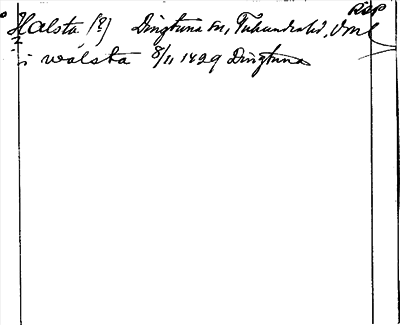 RAP
Halsta (?) Dingtuna sn, Tuhundra hd, Vml
i walsta 8/11 1429 Dingtuna